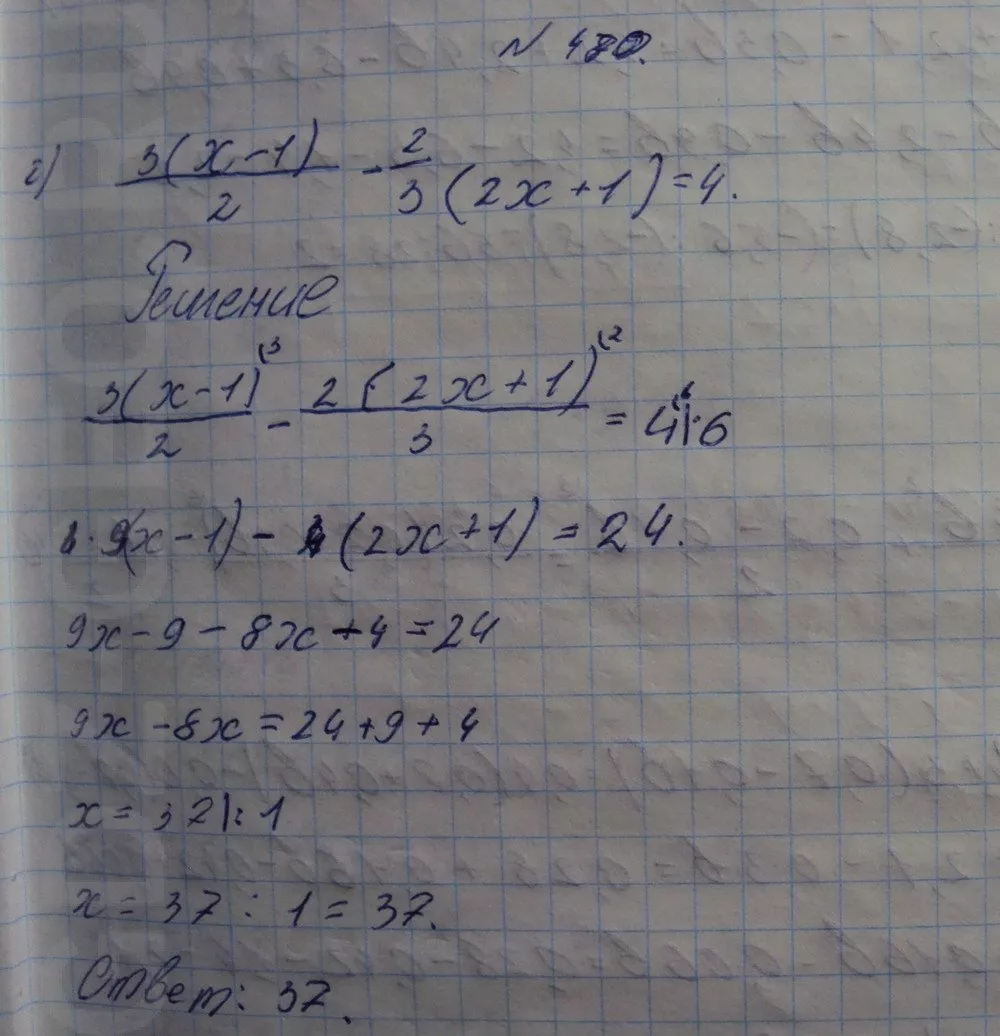 N 480.
г) 3(x-1)/2 - 2/3 (2x+1)=4.
Решение
3(x-1)⁽³/2 - 2(2x+1)⁽²/3 = 4⁽⁶|·6
1·9(x-1)- 4(2x+1) = 24.
9x-9-8x-4=24
9x-8x=24+9+4
x= 37|:1
x = 37 : 1 = 37.
Ответ: 37.